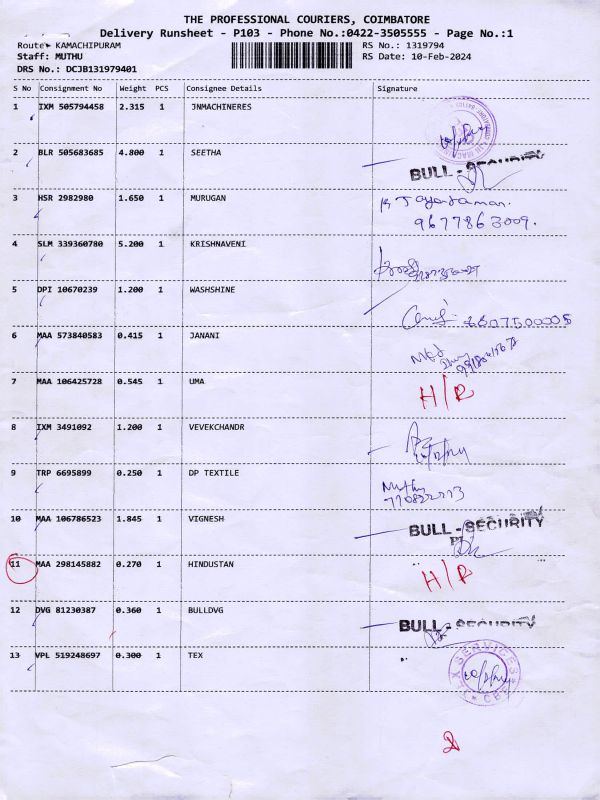 THE PROFESSIONAL COURIERS, COIMBATORE
Delivery Runsheet - P103 - Phone No.:0422-3505555 - Page No.:1
Route: KAMACHIPURAM RS No.: 1319794
Staff: MUTHU RS Date: 10-Feb-2024
DRS No.: DCJB131979401
S No Consignment No Weight PCS Consignee Details Signature
1 IXM 505794458 2.315 1 JNMACHINERES
2 BLR 505683685 4.800 1 SEETHA
BULL - SECURITY
3 HSR 2982980 1.650 1 MURUGAN
9677863009.
4 SLM 339360780 5.200 1 KRISHNAVENI
5 DPI 10670239 1.200 1 WASHSHINE
6 MAA 573840583 0.415 1 JANANI
7 MAA 106425728 0.545 1 UMA
H/R
8 IXM 3491092 1.200 1 VEVEKCHANDR
9 TRP 6695899 0.250 1 DP TEXTILE
Muthu
10 MAA 106786523 1.845 1 VIGNESH
BULL - SECURITY
11 MAA 298145882 0.270 1 HINDUSTAN
H/R
12 DVG 81230387 0.360 1 BULLDVG
BULL - SECURITY
13 VPL 519248697 0.300 1 TEX
SERVICES
2